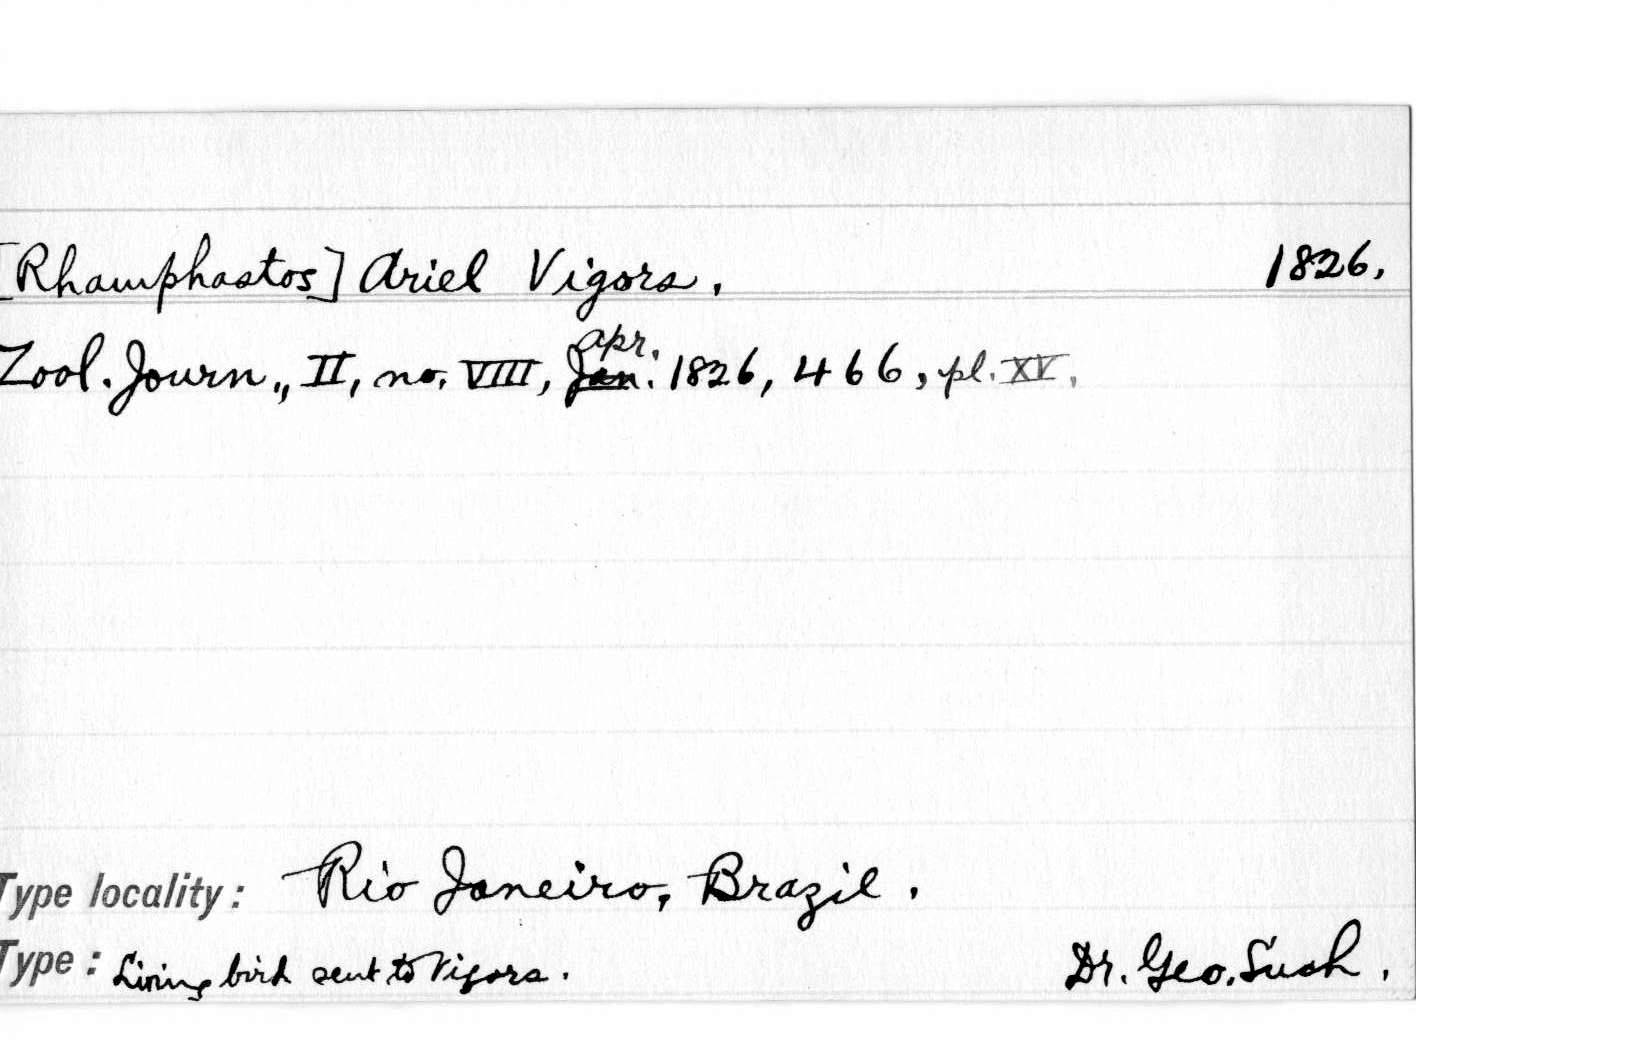 [Rhamphastos] Ariel Vigors. 1826.
Zool. Journ., II, no. VIII, Jan. apr. 1826, 466, pl. XV.
Type locality: Rio Janeiro, Brazil.
Type: Living bird sent to Vigors. Dr. Geo. Such.